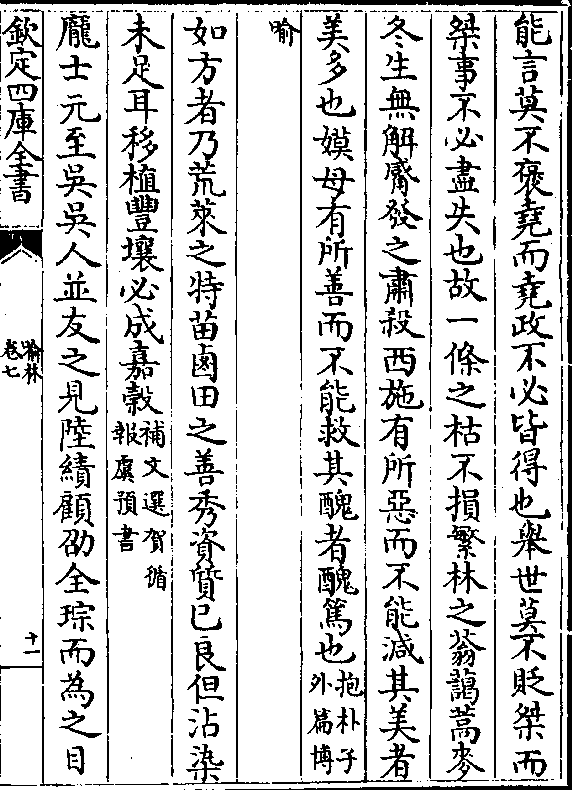 能言莫不褒堯而堯政不必皆得也舉世莫不貶桀而
桀事不必盡失也故一條之枯不損繁林之蓊藹蒿麥
冬生無解齊發之肅殺西施有所惡而不能減其美者
美多也嫫母有所善而不能救其醜者醜篤也抱朴子
外篇博
喻
如方者乃荒萊之特苗鹵田之善秀資質已良但沾染
未足耳移植豐壤必成嘉穀補文選賀循
報虞預書
龐士元至吳吳人並友之見陸績顧劭全琮而為之目
欽定四庫全書
喻林
卷七
十一